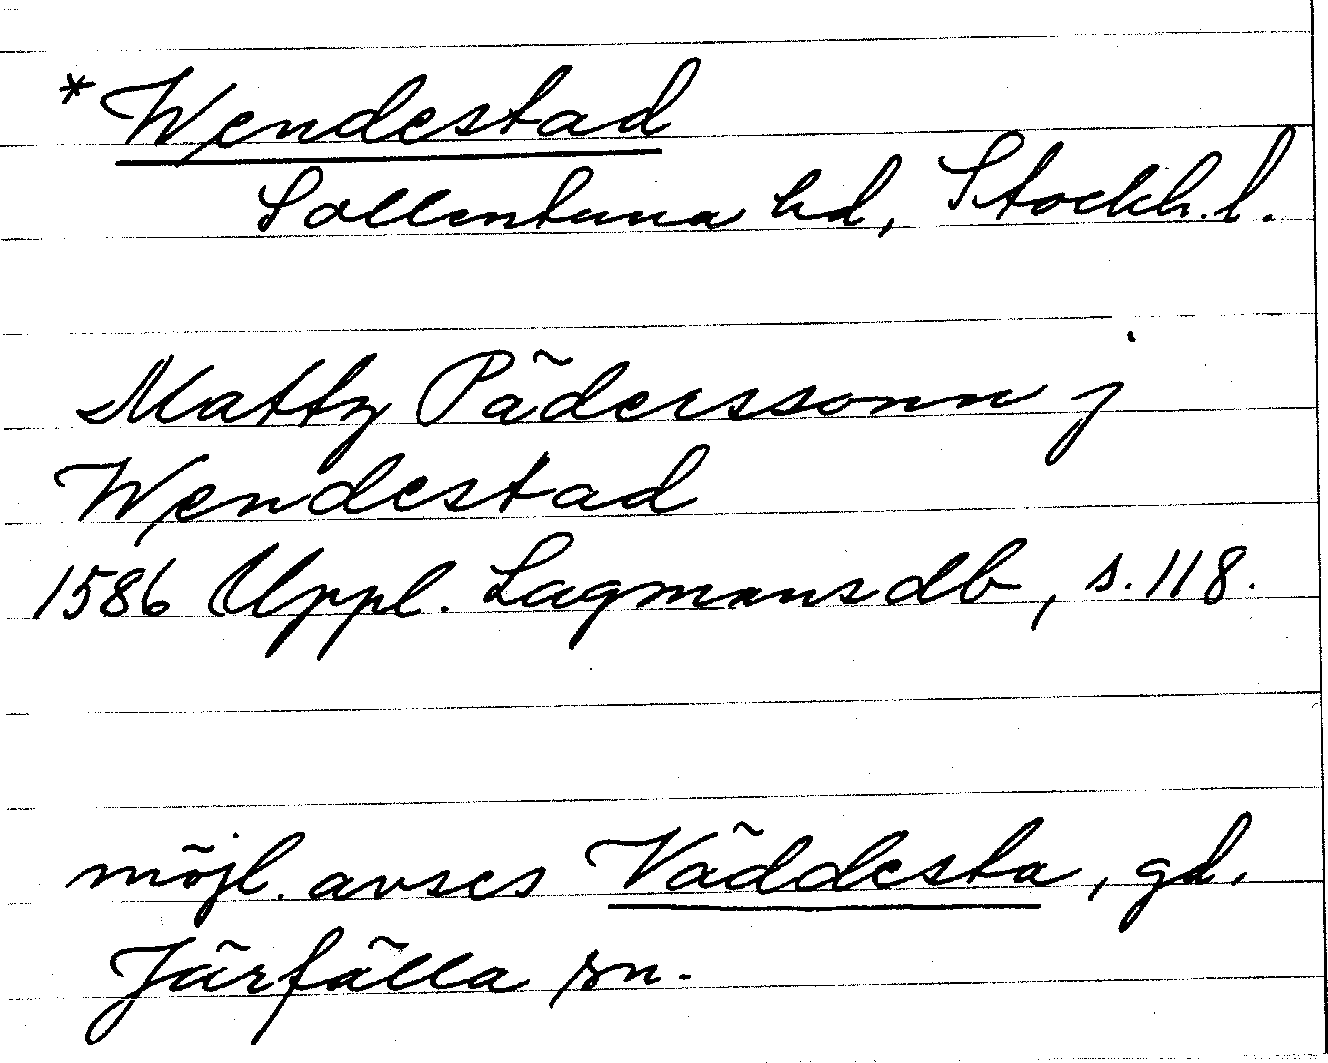 *Wendestad
Sollentuna hd, Stockh. l.
Mattz Päderssonn j
Wendestad
1586 Uppl. Lagmansdb, s. 118.
möjl. avses Väddesta, gd,
Järfälla sn.